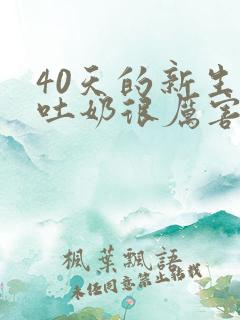 40天的新生
吐奶很厉害
楓葉飄語
未经同意禁止转载